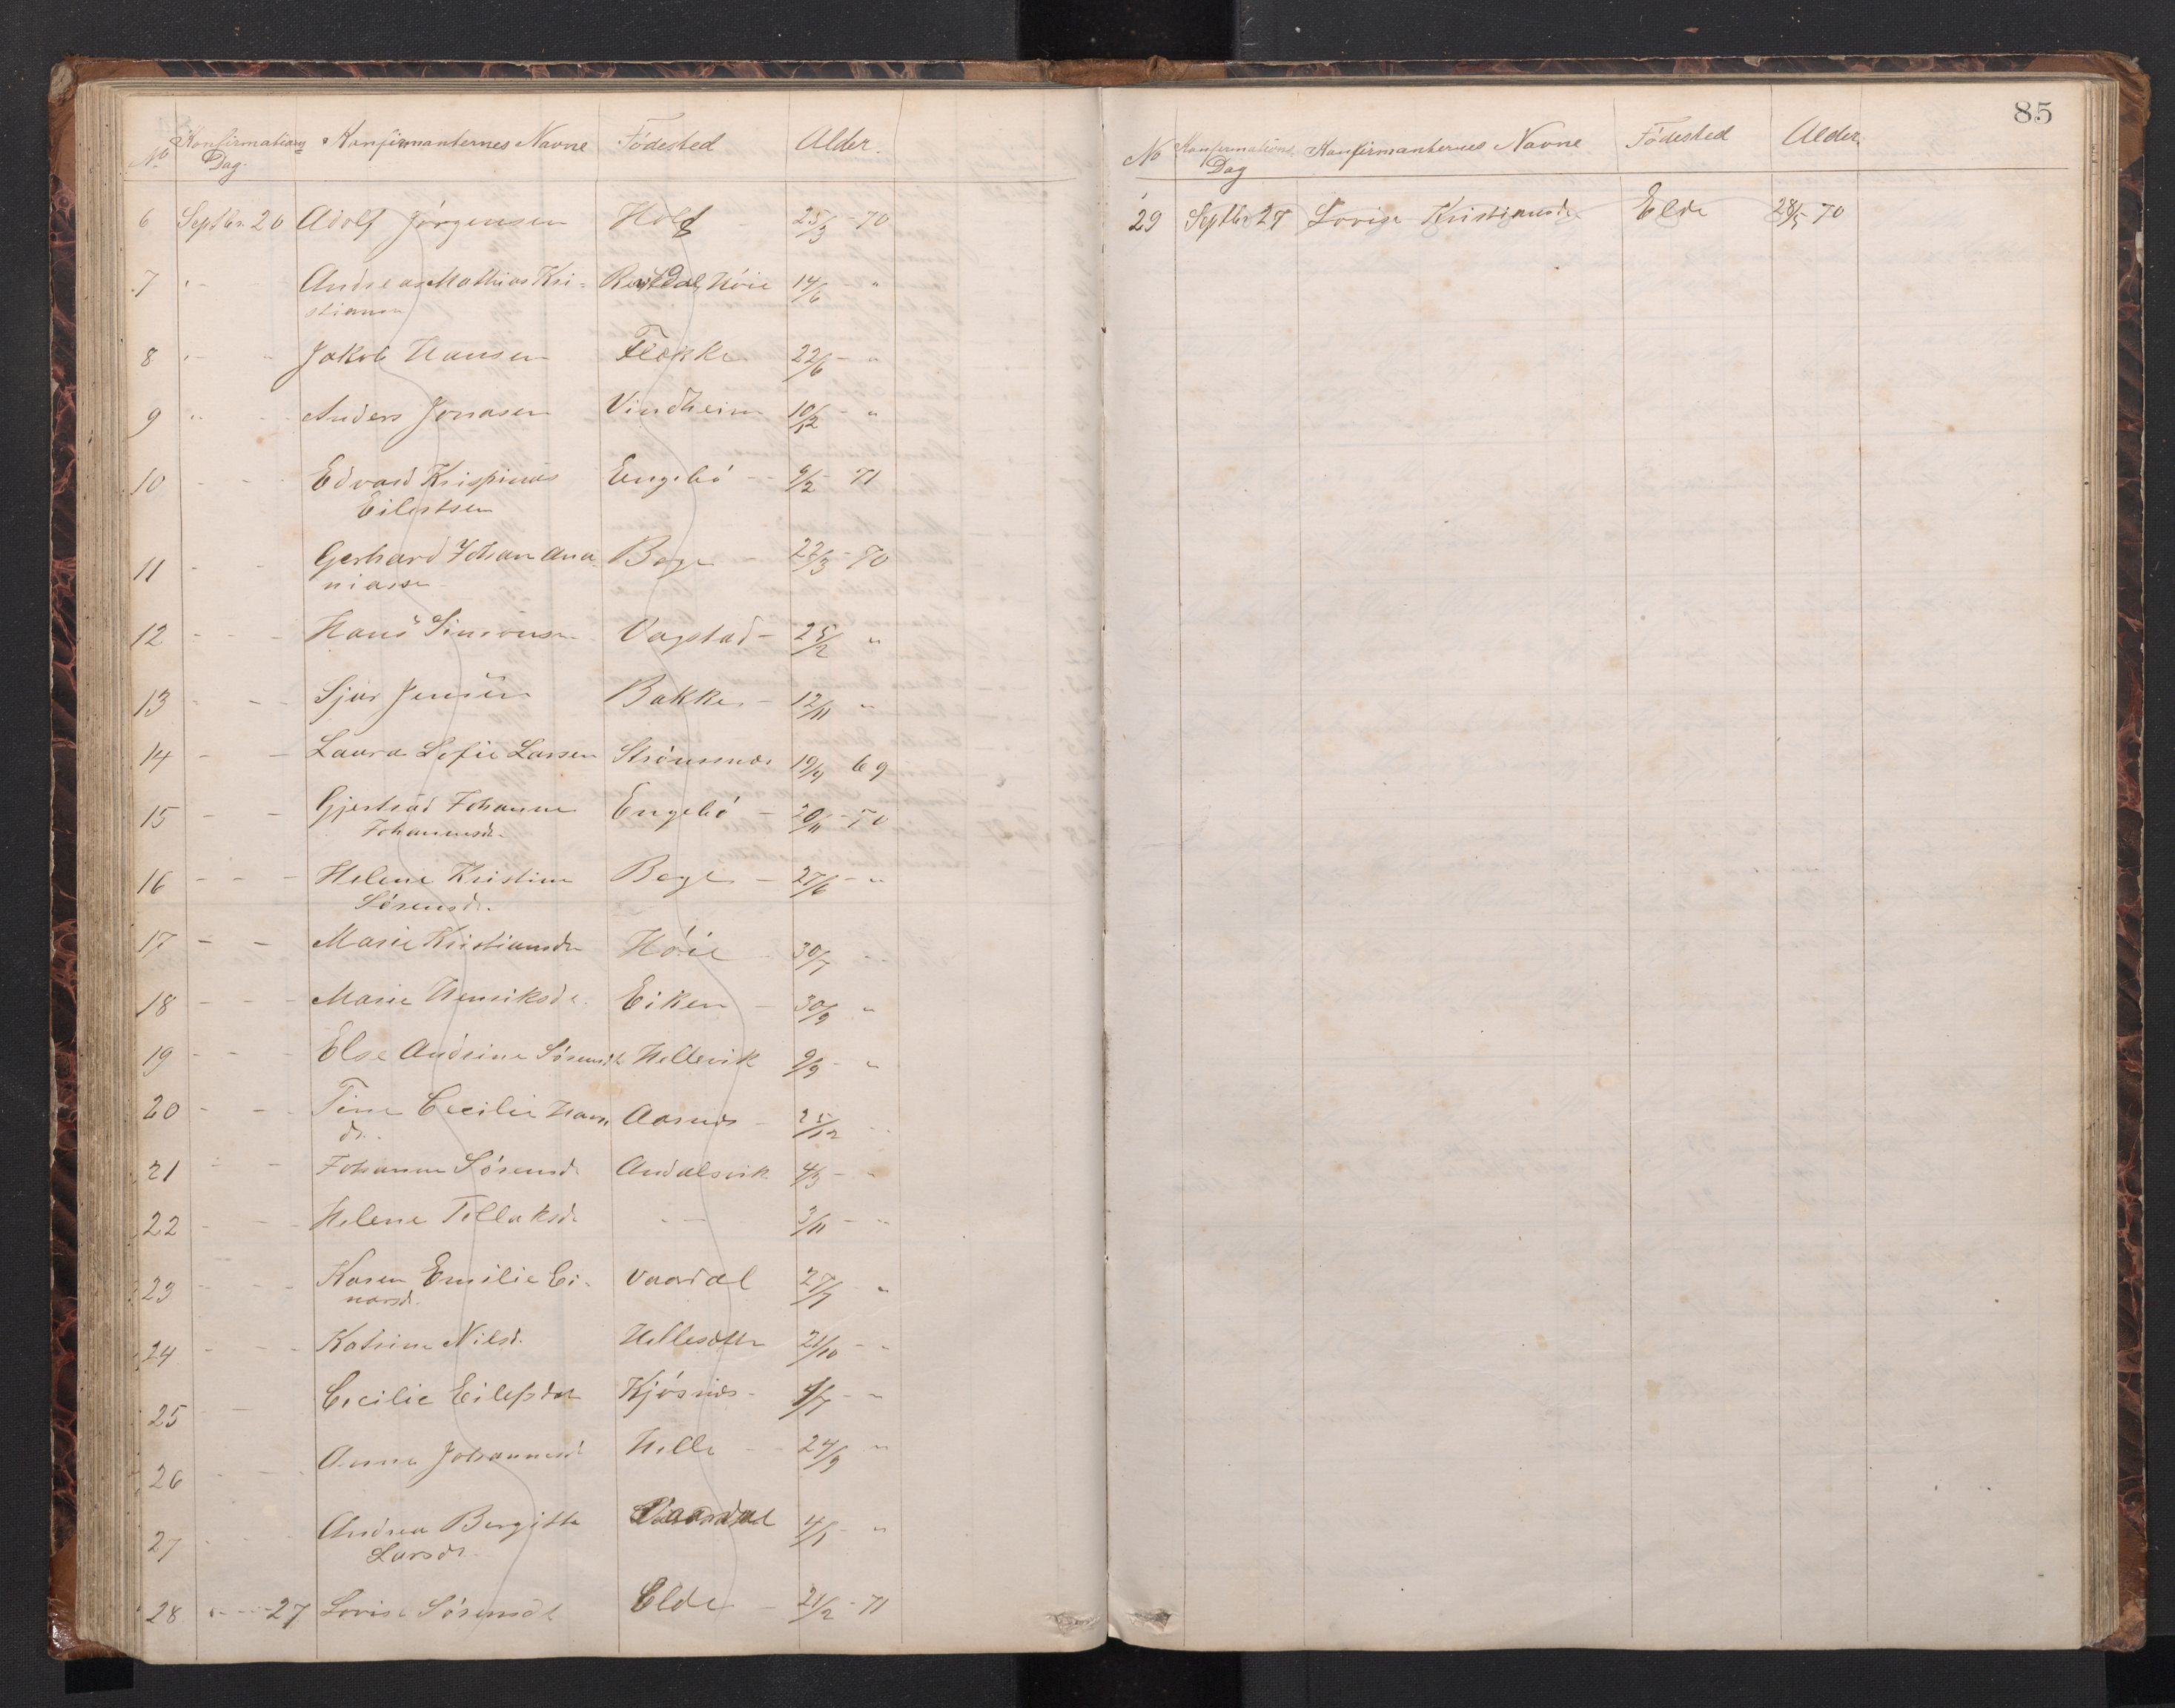 No Konfirmations Dag. Konfirmanternes Navne Fødested Alder.
6 Septbr. 20 Adolf Jørgensen Holt 25/3 - 70
7 " - Andreas Mathias Kri- Høie 14/6 "
stiansen
8 " - Jakob Hansen Flekke 22/6 - "
9 " - Anders Jonasen Vindheim 10/12 - "
10 - - Edvard Krispinus Engebø - 9/2 - 71
Eilertsen
11 - - Gerhard Johan Ana- Bøge - 22/3 - 70
niasse
12 - - Hans Simonsen Vagstad - 25/2 "
13 - - Sjur Jensen Bakke - 12/11 "
14 - - Laura Sofie Larsen Strömsnæs 19/9 69
15 - - Gjertrud Johanne Engebø - 20/11 - 70
Johannesd.
16 - - Helene Kristine Bøge - 27/6 - "
Sørensd.
17 - - Marie Kristiansdr Høie - 30/7 - -
18 - - Marie Henriksdr. Eiken - 30/9 "
19 - - Else Andrine Sørensdt Hellevik 9/9 - "
20 - - Tine Cecilie Hans Aasnæs - 25/12 - -
dr.
21 - - Johanne Sørensd. Andalsvik 4/3 - "
22 - - Helene Tollaksd. - - 3/11 - "
23 - - Karen Emilie Ei- Vaardal 27/7 "
narsd.
24 - - Katrine Nilsd. Hellesæter 21/10 - "
25 - - Cecilie Eilefsdat Kjøsnæs - 1/7 - "
26 - - Anna Johannesd. Helle - 24/9 "
27 - - Andrea Bergitte Vaardal 4/1 - "
Larsdr.
28 " - - 27 Lovise Sørensdt Elde - 21/2 - 71
85
No Konfirmations Dag Konfirmanternes Navne Fødested Alder.
29 Septbr 27 Lovise Kristiansdr. Elde 28/5 - 70